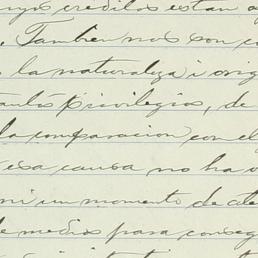 creditos estan
. Tambien nos son
la naturaleza i orig
tantos privilegios, de
la comparacion con el
esa causa no ha
ni un momento de
de medios para conseg